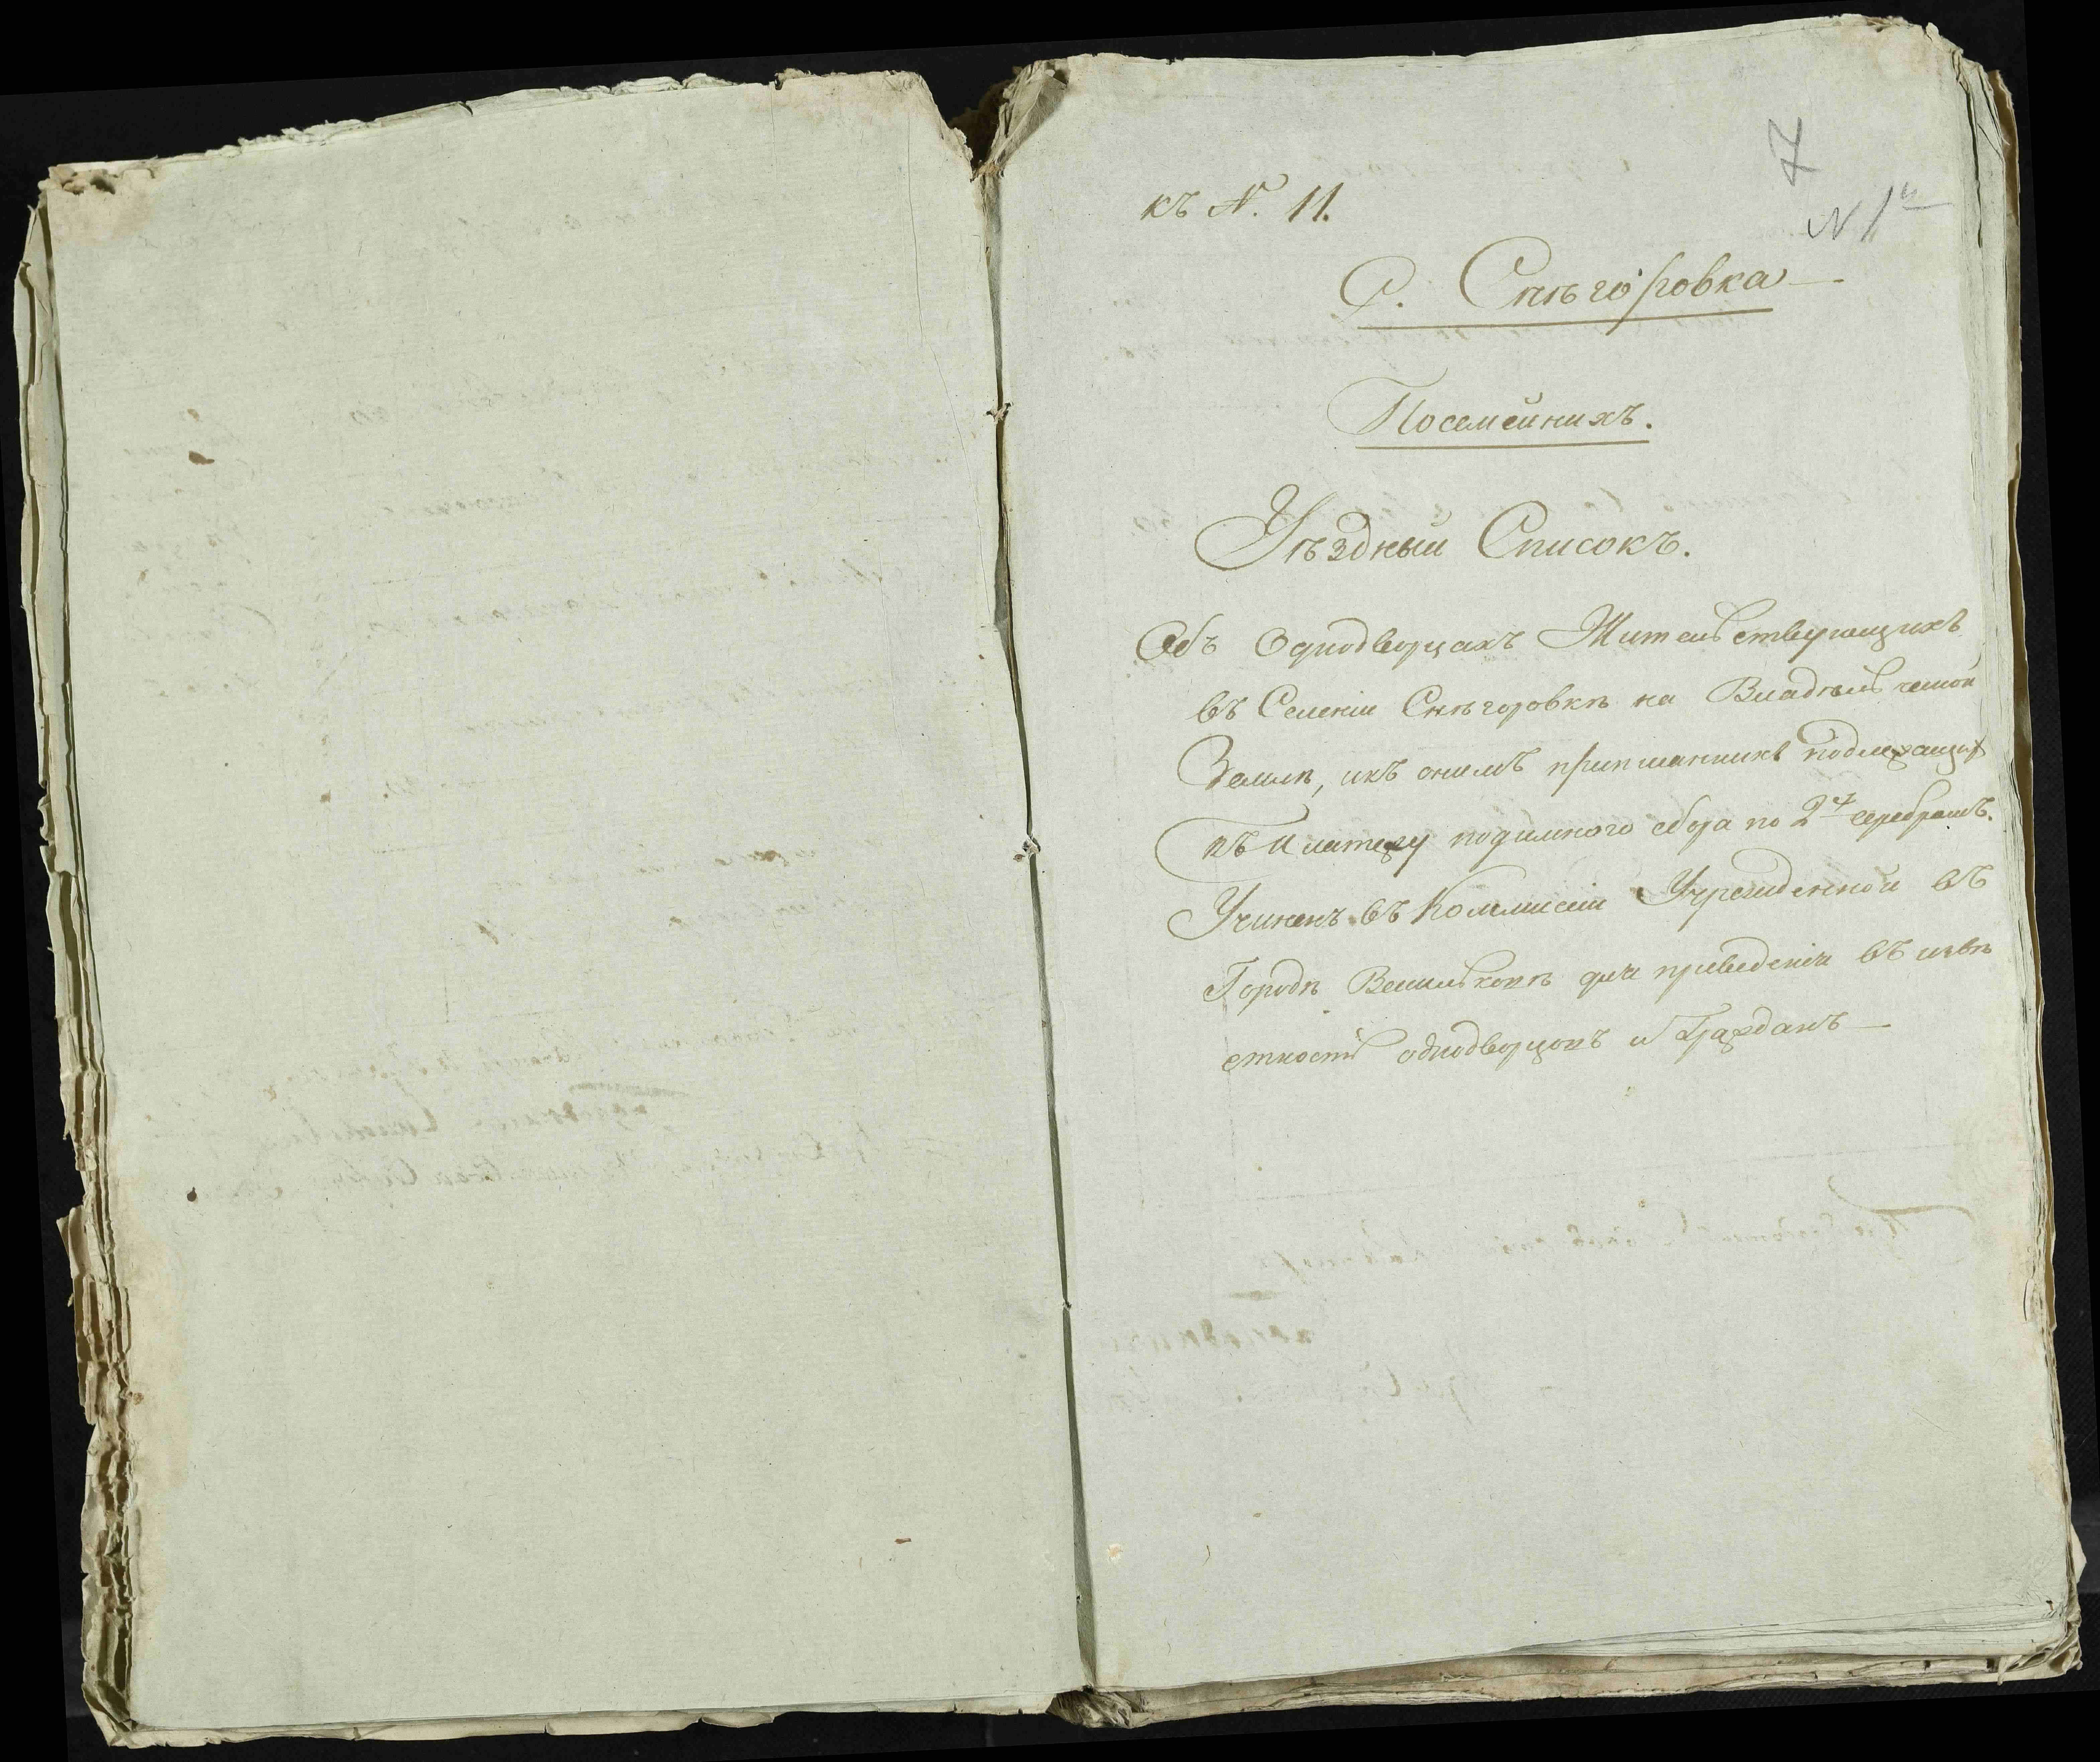 7
къ №. 11.
N 1й
С. Снѣгоровка
Посемейнихъ.
Уѣздный Списокъ.
Объ Однодворцахъ Жительствующихъ
въ Селеніи Снѣгоровкѣ на Владѣльческой
Земли, икъ онимъ припи­санныхъ подлежащих
къ платежу подимного сбора по 2 серебромъ.
Учиненъ въ Коммисіи Учрежденной въ
Городѣ Василькове для приведенія въ извѣ
стность однодворцовъ и Гражданъ